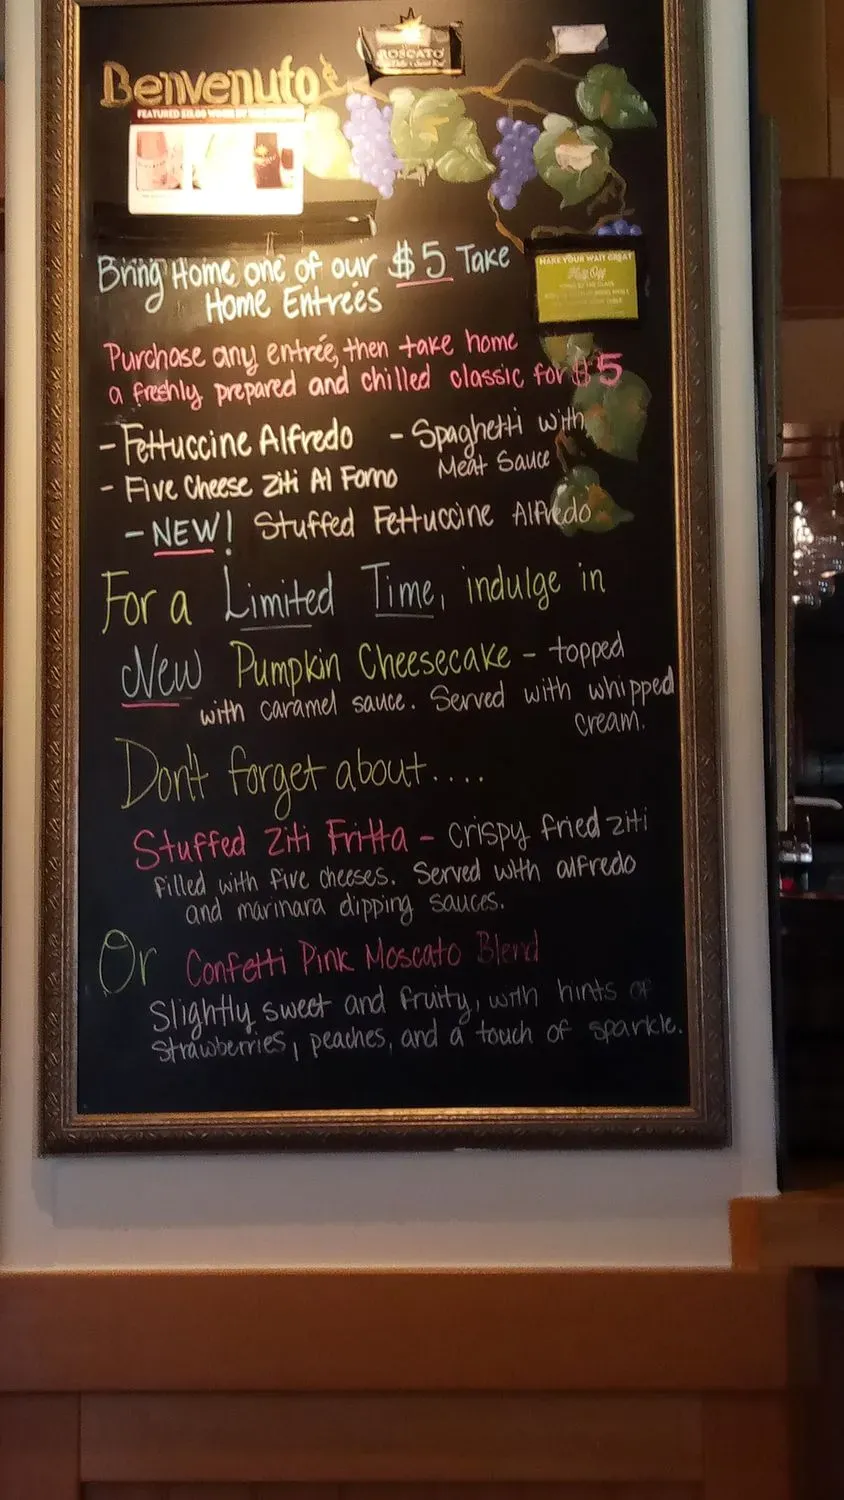 ROSCATO
Benvenuto
Bring Home one of our $5 Take
Home Entrées
MAKE YOUR WAIT GREAT
Half Off
Purchase any entrée, then take home
a freshly prepared and chilled classic for $5
- Fettuccine Alfredo - Spaghetti with
Meat Sauce
- Five Cheese Ziti Al Forno
- NEW! Stuffed Fettuccine Alfredo
For a Limited Time, indulge in
New Pumpkin Cheesecake - topped
with caramel sauce. Served with whipped
cream.
Don't forget about....
Stuffed Ziti Fritta - crispy fried ziti
filled with five cheeses. Served with alfredo
and marinara dipping sauces.
Or Confetti Pink Moscato Blend
Slightly sweet and fruity, with hints of
strawberries, peaches, and a touch of sparkle.